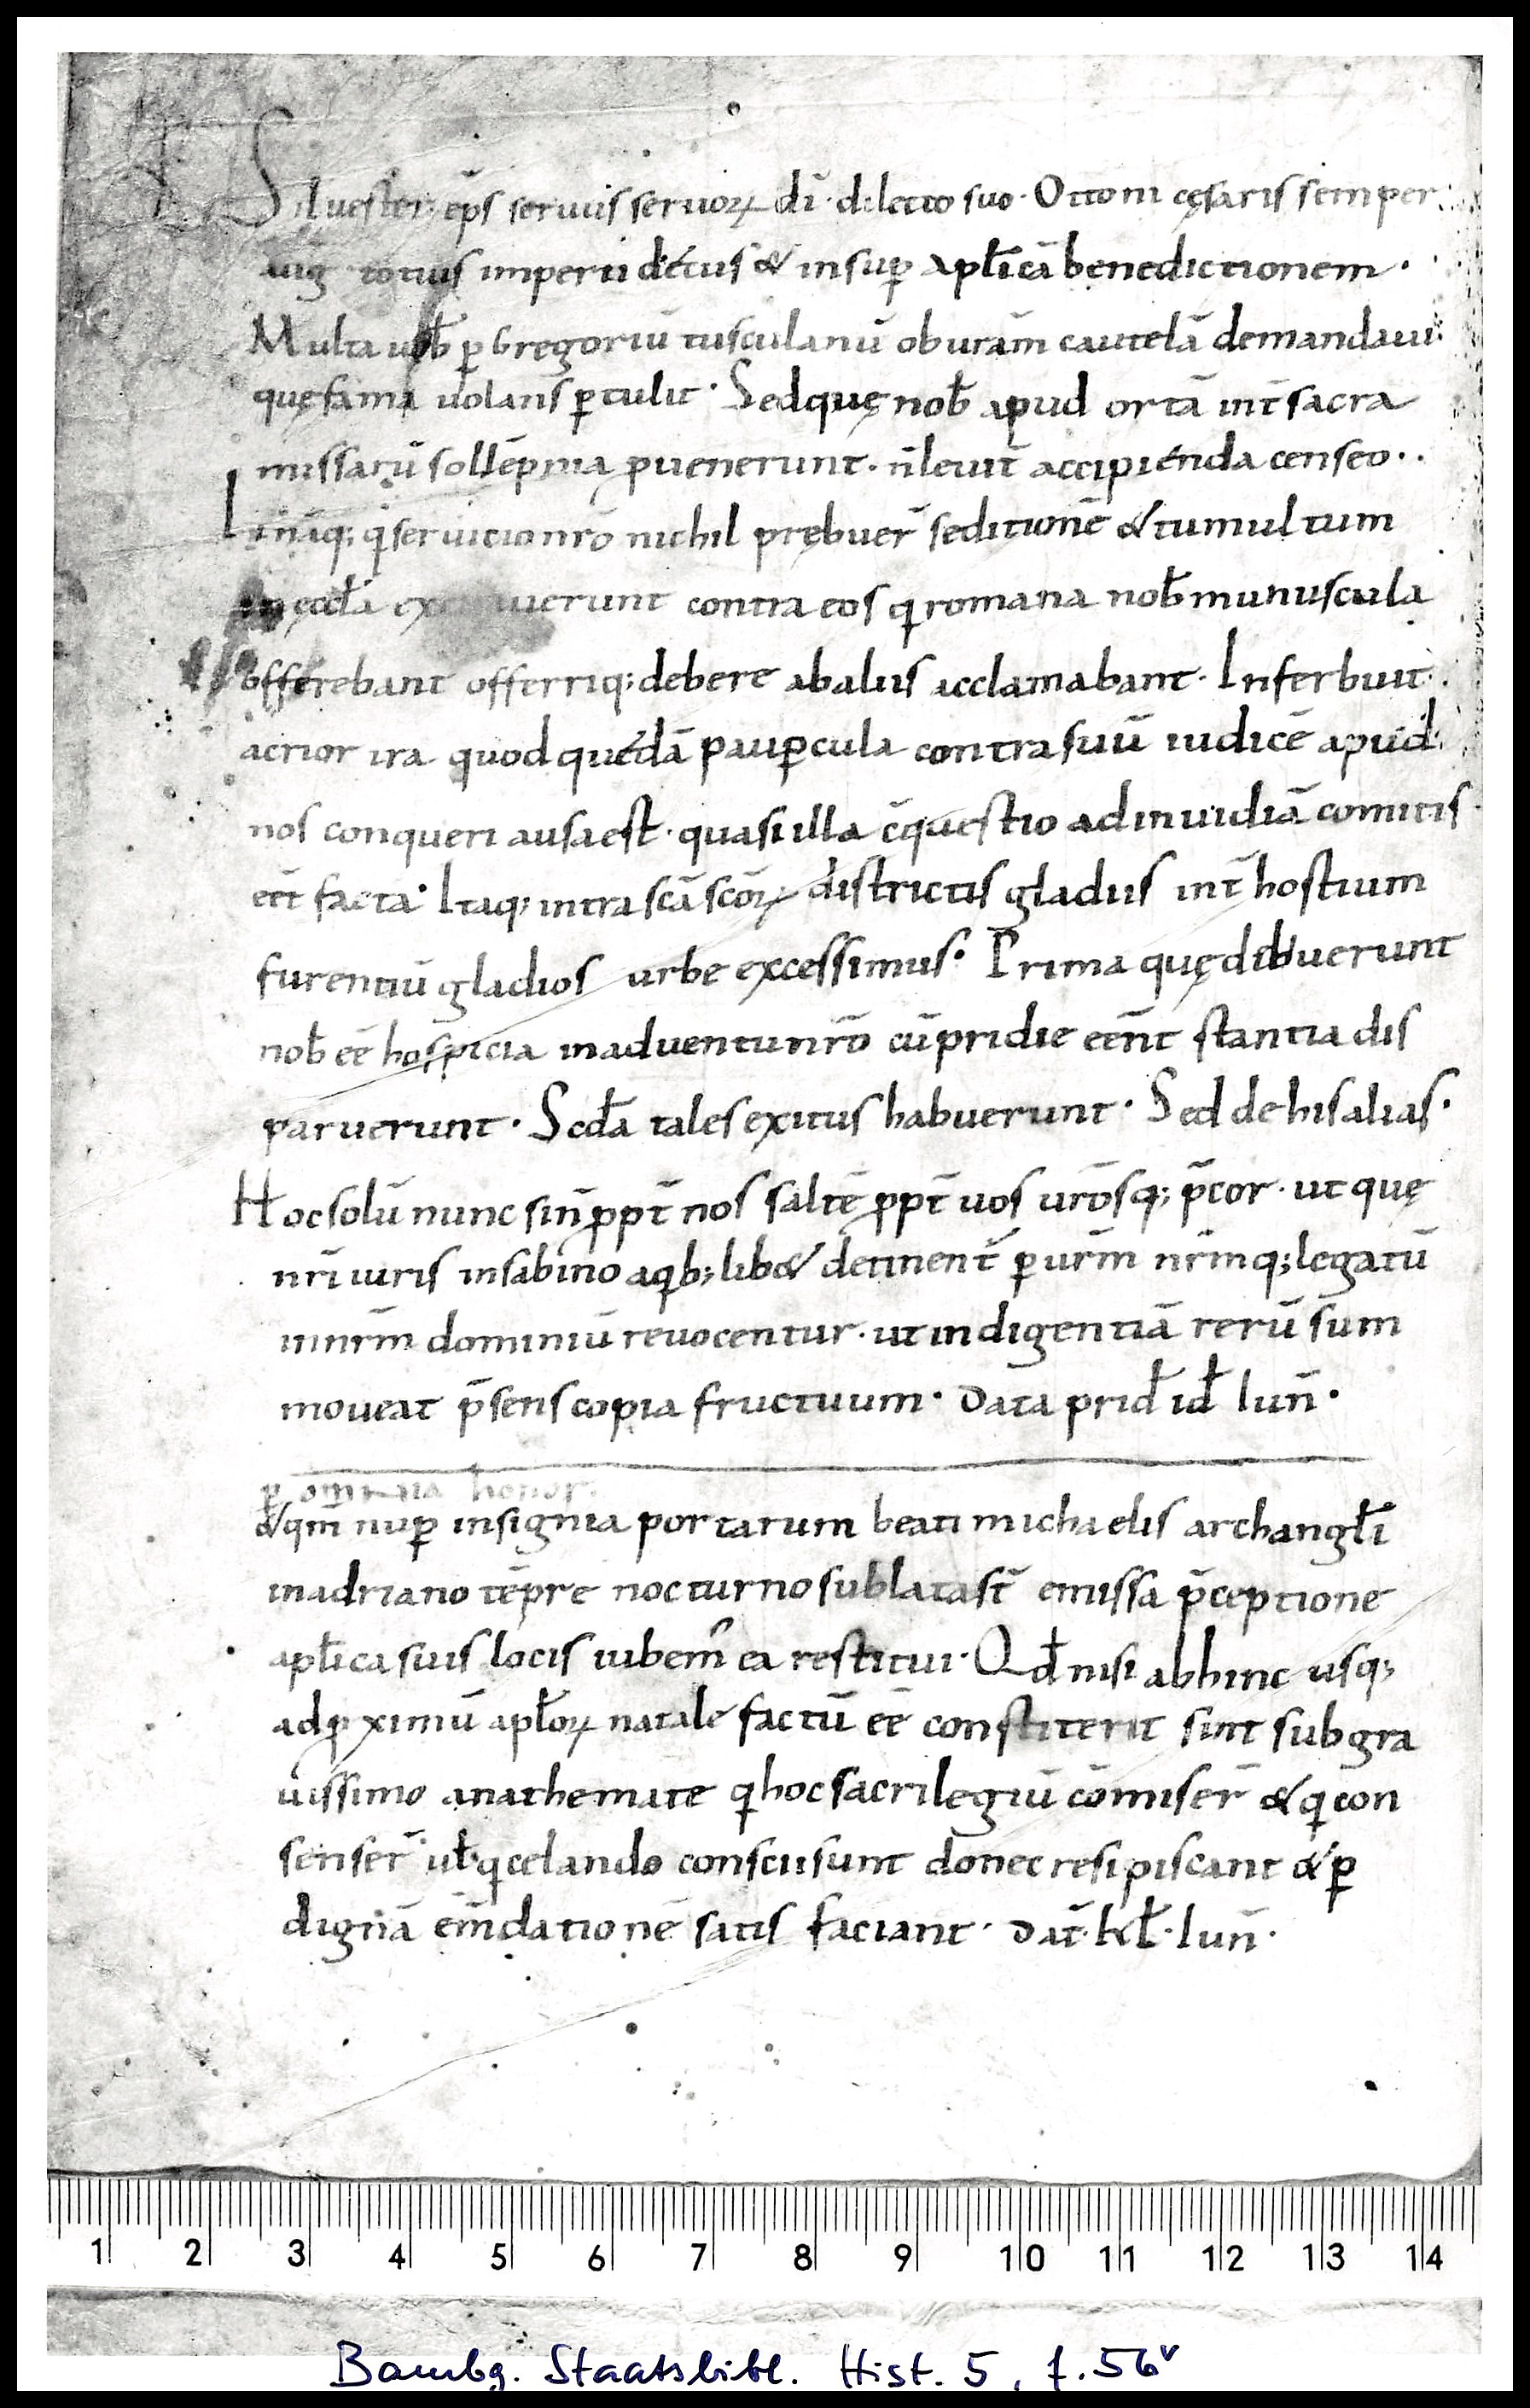 Siluester ep̄s seruus seruoꝝ dī · dilecto suo · Ottoni cęsaris semper
aug totius imperii decus & insuꝑ apłicā benedictionem ·
Multa uob̄ ꝑ Gregoriū tusculanū ob uram̄ cautelā demandaui
quę fama uolans ꝑtulit · Sed quę nob̄ apud ortā int̄ sacra
missarū sollēpnia ꝑuenerunt · n̄ leuit̄ accipienda censeo ·
Ininiq; q̇ seruicio nrō nichil prębuer̄ seditionē & tumultum
in ęccła uerunt contra eos q̇ romana nob̄ munuscula
offerebant offerriq; debere ab aliis acclamabant · Inferbuit
acrior ira quod quędā pauꝑcula contra suū iudicē apud
nos conqueri ausa est · quasi illa c̄questio ad inuidiā comitis
eēt facta · Itaq; intra scā scōꝝ districtis gladiis int̄ hostium
furentiū gladios urbe excessimus · Prima quę dibuerunt
nob̄ eē hospicia in aduentu nrō cū pridie eēnt stantia dis
paruerunt · Scđa tales exitus habuerunt · Sed de his alias ·
Hoc solū nunc sin̄ ꝓpt̄ nos saltē ꝓpt̄ uos urōsq; p̄cor · ut quę
nrī iuris in sabino a q̇b; lib& detinent̄ ꝑ urm̄ nrm̄q; legatū
in nrm̄ dominiū reuocentur · ut indigentiā rerū sum
moueat p̄sens copia fructuum · Data prid̄ id̄ Iun̄ ·
ꝑ om̄nia honor
& qm̄ nuꝑ insignia portarum beati michaelis archangłi
in adriano tēpre nocturno sublata st̄ emissa p̄ceptione
apłica suis locis iubem̄ ea restitui · Qđ nisi abhinc usq;
ad ꝓximū apłoꝝ natale factū eē constiterit sint sub gra
uissimo anathemate q̇ hoc sacrilegiū cōmiser̄ & q̇ con
senser̄ uł q̇ celando conscii sunt donec resipiscant & ꝑ
dignā em̄dationē satis faciant · Dat̄ · Kł · Iun̄ ·
1 2 3 4 5 6 7 8 9 10 11 12 13 14
Bambg. Staatsbibl. Hist. 5, f. 56v